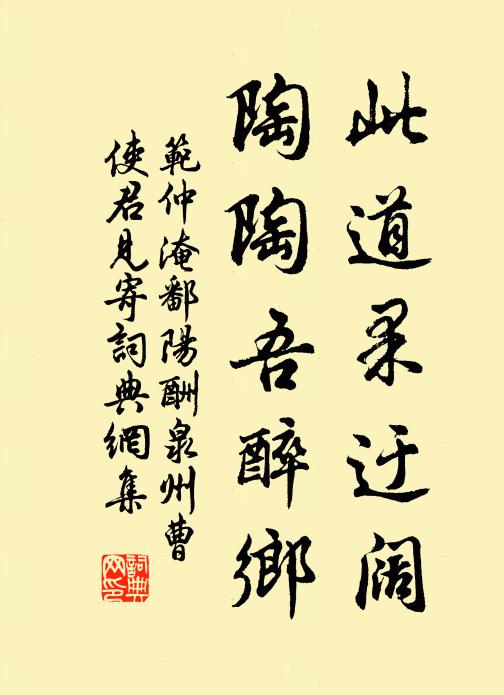 此道果迂阔
陶陶吾醉鄉
範仲淹鄱陽酬泉州曹
使君見寄詞典網集
詞典網印